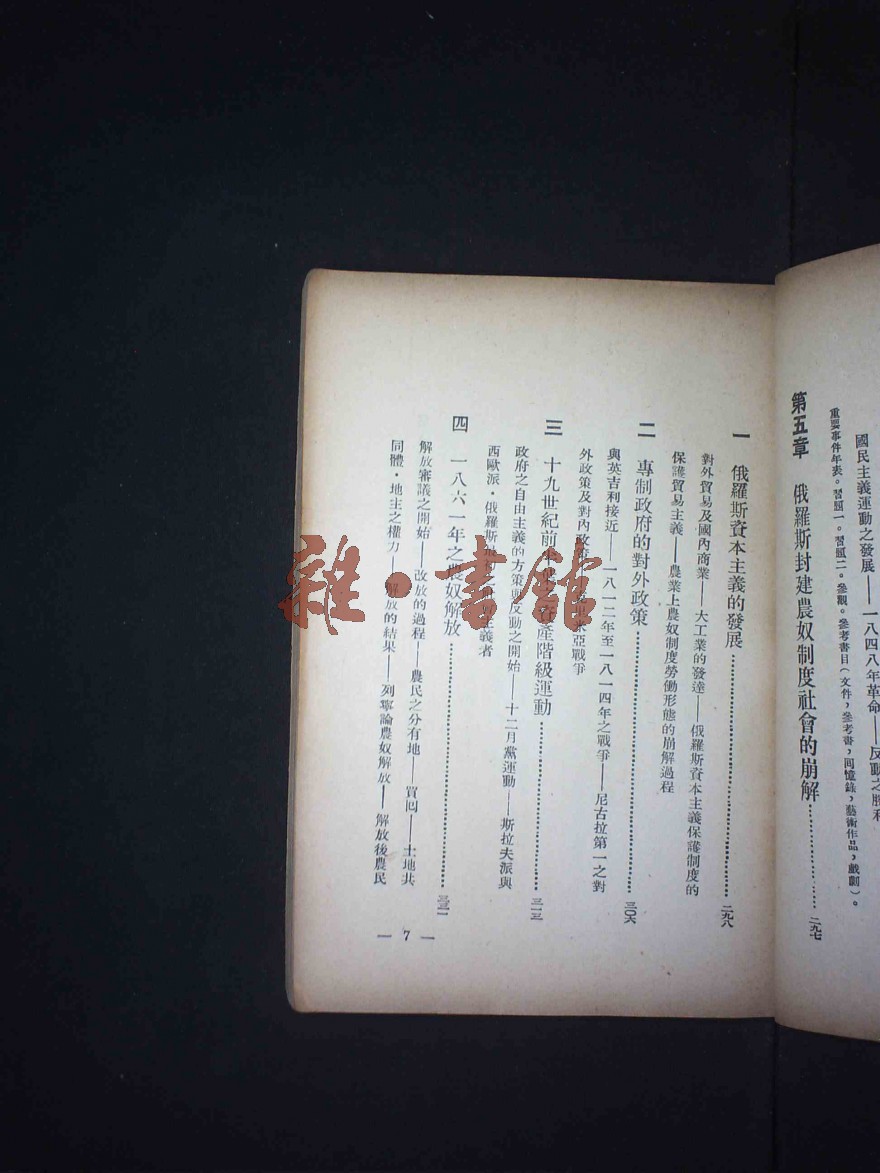 國民主義運動之發展——一八四八年革命——反動之勝利
重要事件年表。習題一。習題二。參觀。參考書目(文件，參考書，囘憶錄，藝術作品，戲劇)。
第五章 俄羅斯封建農奴制度社會的崩解…………二九七
一 俄羅斯資本主義的發展…………二九八
對外貿易及國內商業——大工業的發達——俄羅斯資本主義保護制度的
保護貿易主義——農業上農奴制度勞働形態的崩解過程
二 專制政府的對外政策…………三〇六
與英吉利接近——一八一二年至一八一四年之戰爭——尼古拉第一之對
外政策及對內政 米亞戰爭
三 十九世紀前 產階級運動…………三一三
政府之自由主義的方策與反動之開始——十二月黨運動——斯拉夫派與
西歐派·俄羅斯 主義者
四 一八六一年之農奴解放…………三二一
解放審議之開始——改放的過程——農民之分有地——買囘——土地共
同體·地主之權力——解放的結果——列寧論農奴解放——解放後農民
— 7 —
雜·書館